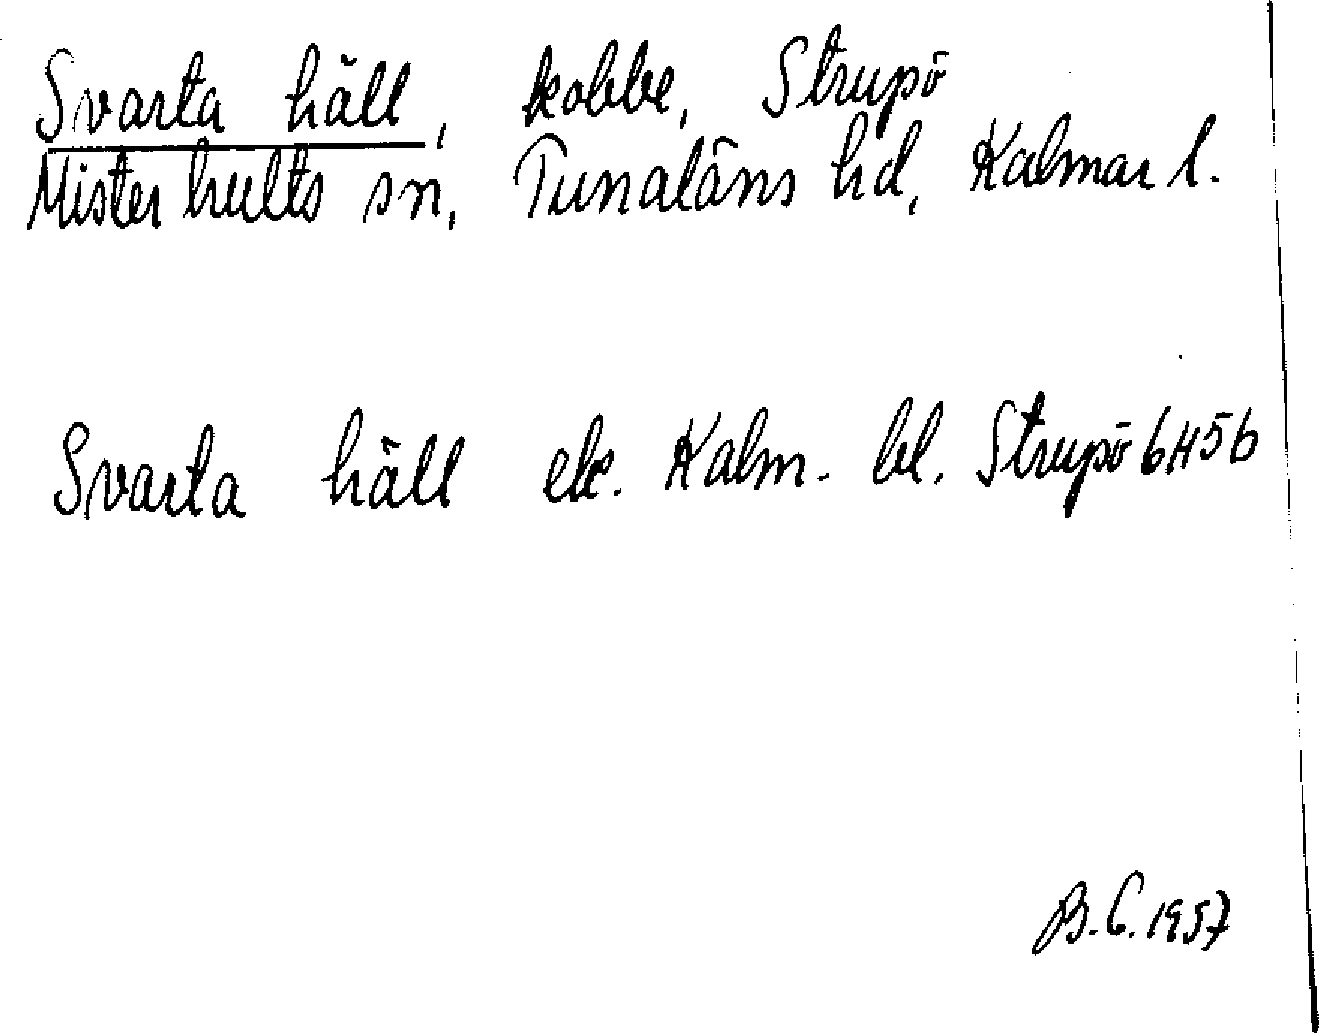 Svarta häll, kobbe, Strupö
Misterhults sn, Tunaläns hd, Kalmar l.
Svarta häll ek. Kalm. bl. Strupö 6H5b
B.C. 1957